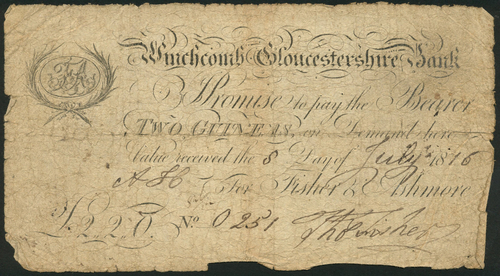 Winchcomb Gloucestershire Bank
I Promise to pay the Bearer
TWO GUINEAS, on Demand here
Value received the 8 Day of July 1816
For Fisher & Ashmore
£2.2.0. No 0251